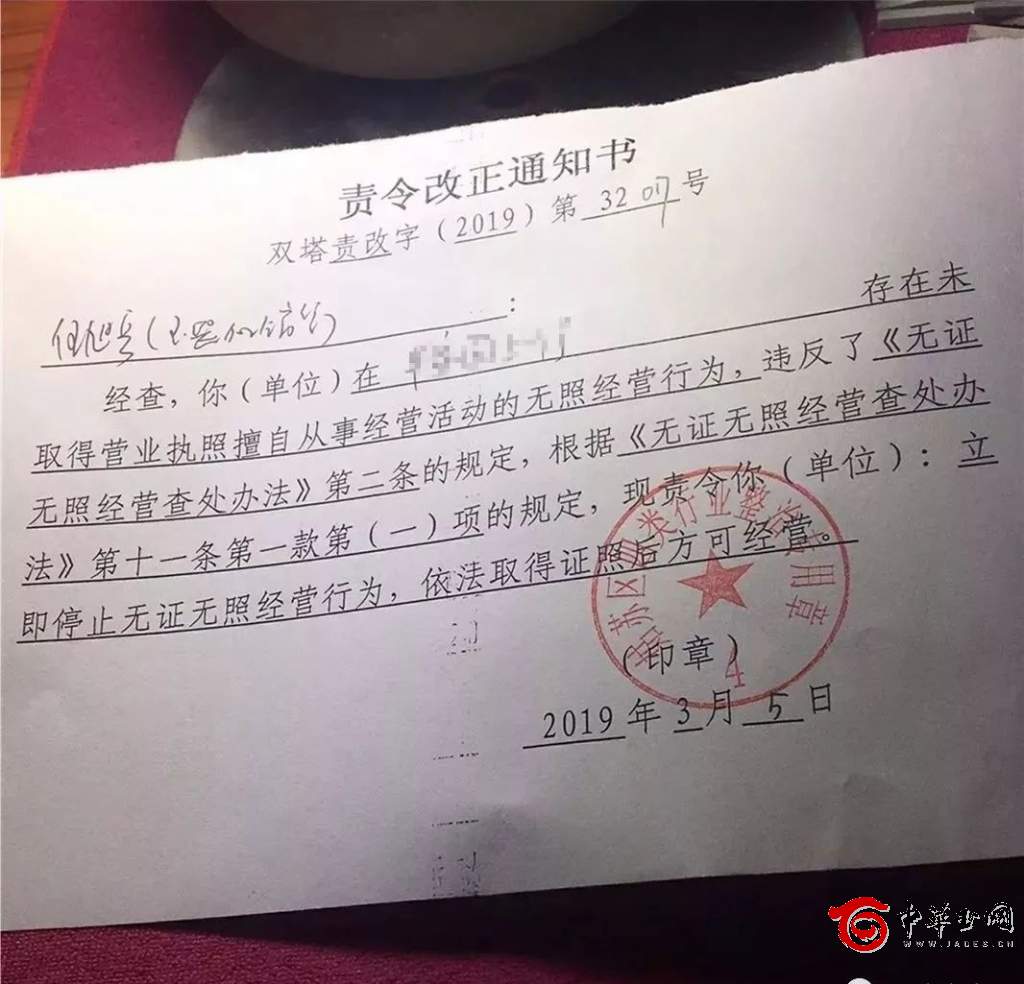 责令改正通知书
双塔责改字（2019）第 3207 号
：
经查，你（单位）在 存在未
取得营业执照擅自从事经营活动的无照经营行为，违反了《无证
无照经营查处办法》第二条的规定，根据《无证无照经营查处办
法》第十一条第一款第（一）项的规定，现责令你（单位）：立
即停止无证无照经营行为，依法取得证照后方可经营。
（印章）
4
2019 年 3 月 5 日
中华玉网
WWW.JADES.CN